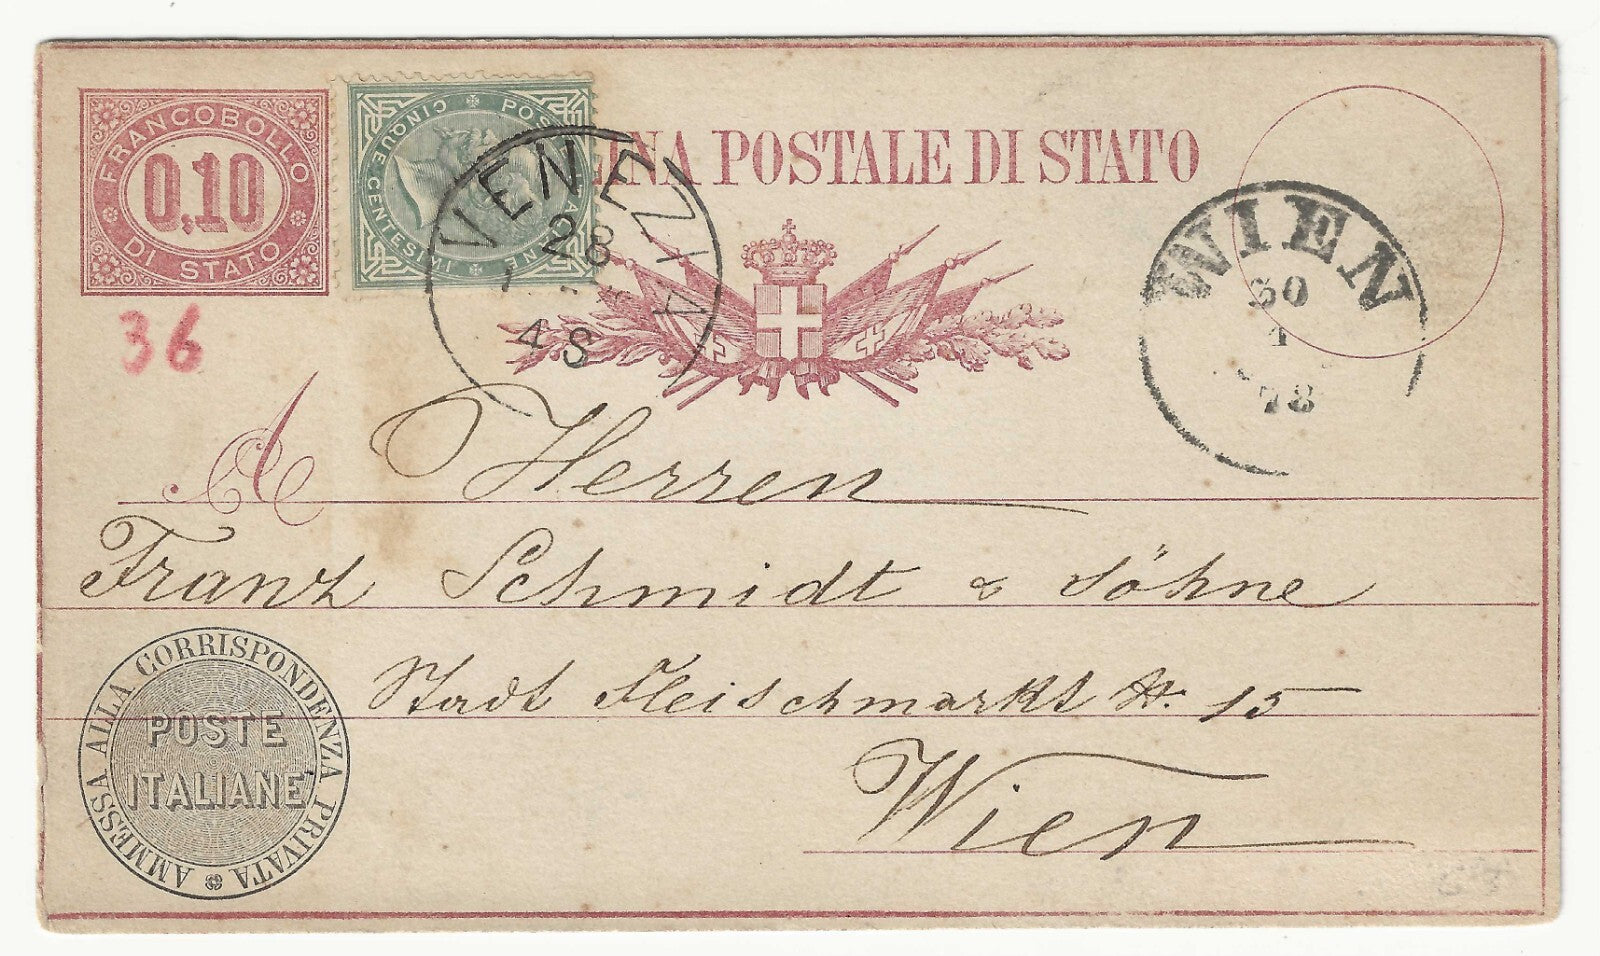 FRANCOBOLLO
0,10
DI STATO
POSTE ITALIANE
CINQUE CENTESIMI
INA POSTALE DI STATO
VENEZIA
28
4 S
WIEN
30
1
78
36
A Herren
Franz Schmidt & Söhne
Stadt Fleischmarkt N. 15
Wien
AMMESSA ALLA CORRISPONDENZA PRIVATA
POSTE
ITALIANE